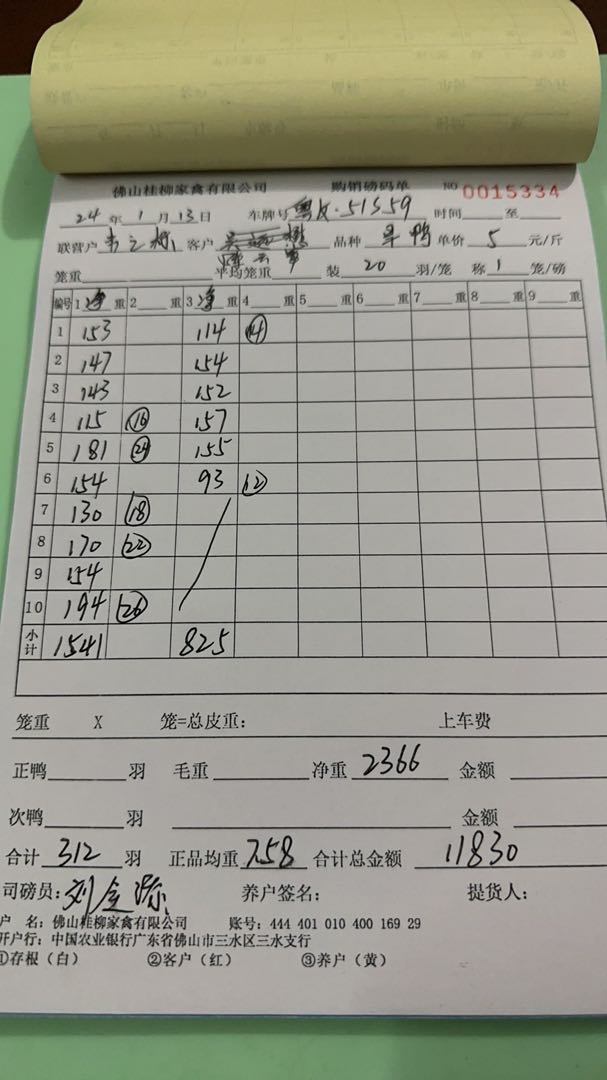 佛山桂柳家禽有限公司 购销磅码单 NO 0015334
24年1月13日 车牌号 粤X·51S59 时间 至
联营户 客户 品种 旱鸭 单价 5 元/斤
笼重 平均笼重 装 20 羽/笼 称 1 笼/磅
编号 1 净 重 2 重 3 净 重 4 重 5 重 6 重 7 重 8 重 9 重
1 153 114 14
2 147 154
3 143 152
4 115 16 157
5 181 24 155
6 154 93 12
7 130 18
8 170 22
9 154
10 194 26
小计 1541 825
笼重 X 笼=总皮重: 上车费
正鸭 羽 毛重 净重 2366 金额
次鸭 羽 金额
合计 312 羽 正品均重 7.58 合计总金额 11830
司磅员: 刘 养户签名: 提货人:
户 名: 佛山桂柳家禽有限公司 账号: 444 401 010 400 169 29
开户行: 中国农业银行广东省佛山市三水区三水支行
①存根(白) ②客户(红) ③养户(黄)